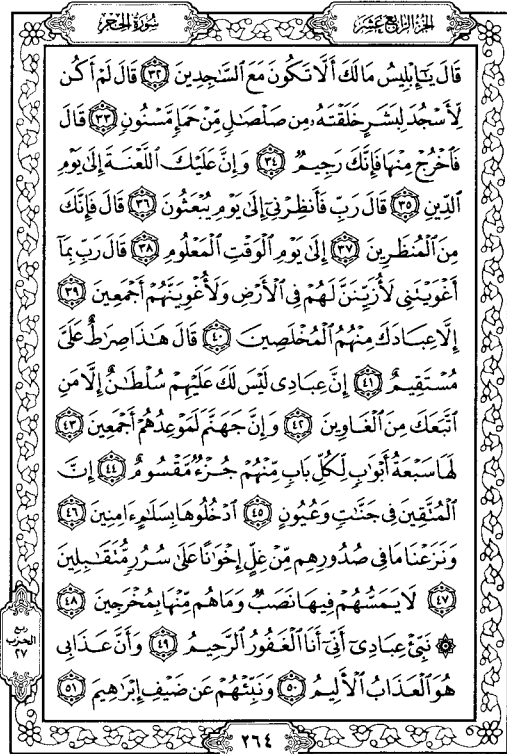 سُورَةُ الحِجْرِ
الجُزْءُ الرَّابِعَ عَشَرَ
قَالَ يَٰٓإِبْلِيسُ مَا لَكَ أَلَّا تَكُونَ مَعَ ٱلسَّٰجِدِينَ ٣٢ قَالَ لَمْ أَكُن
لِّأَسْجُدَ لِبَشَرٍ خَلَقْتَهُۥ مِن صَلْصَٰلٍ مِّنْ حَمَإٍ مَّسْنُونٍ ٣٣ قَالَ
فَٱخْرُجْ مِنْهَا فَإِنَّكَ رَجِيمٌ ٣٤ وَإِنَّ عَلَيْكَ ٱللَّعْنَةَ إِلَىٰ يَوْمِ
ٱلدِّينِ ٣٥ قَالَ رَبِّ فَأَنظِرْنِىٓ إِلَىٰ يَوْمِ يُبْعَثُونَ ٣٦ قَالَ فَإِنَّكَ
مِنَ ٱلْمُنظَرِينَ ٣٧ إِلَىٰ يَوْمِ ٱلْوَقْتِ ٱلْمَعْلُومِ ٣٨ قَالَ رَبِّ بِمَآ
أَغْوَيْتَنِى لَأُزَيِّنَنَّ لَهُمْ فِى ٱلْأَرْضِ وَلَأُغْوِيَنَّهُمْ أَجْمَعِينَ ٣٩
إِلَّا عِبَادَكَ مِنْهُمُ ٱلْمُخْلَصِينَ ٤٠ قَالَ هَٰذَا صِرَٰطٌ عَلَىَّ
مُسْتَقِيمٌ ٤١ إِنَّ عِبَادِى لَيْسَ لَكَ عَلَيْهِمْ سُلْطَٰنٌ إِلَّا مَنِ
ٱتَّبَعَكَ مِنَ ٱلْغَاوِينَ ٤٢ وَإِنَّ جَهَنَّمَ لَمَوْعِدُهُمْ أَجْمَعِينَ ٤٣
لَهَا سَبْعَةُ أَبْوَٰبٍ لِّكُلِّ بَابٍ مِّنْهُمْ جُزْءٌ مَّقْسُومٌ ٤٤ إِنَّ
ٱلْمُتَّقِينَ فِى جَنَّٰتٍ وَعُيُونٍ ٤٥ ٱدْخُلُوهَا بِسَلَٰمٍ ءَامِنِينَ ٤٦
وَنَزَعْنَا مَا فِى صُدُورِهِم مِّنْ غِلٍّ إِخْوَٰنًا عَلَىٰ سُرُرٍ مُّتَقَٰبِلِينَ
٤٧ لَا يَمَسُّهُمْ فِيهَا نَصَبٌ وَمَا هُم مِّنْهَا بِمُخْرَجِينَ ٤٨
۞ نَبِّئْ عِبَادِىٓ أَنِّىٓ أَنَا ٱلْغَفُورُ ٱلرَّحِيمُ ٤٩ وَأَنَّ عَذَابِى
هُوَ ٱلْعَذَابُ ٱلْأَلِيمُ ٥٠ وَنَبِّئْهُمْ عَن ضَيْفِ إِبْرَٰهِيمَ ٥١
ربع
الحزب
٢٧
٢٦٤